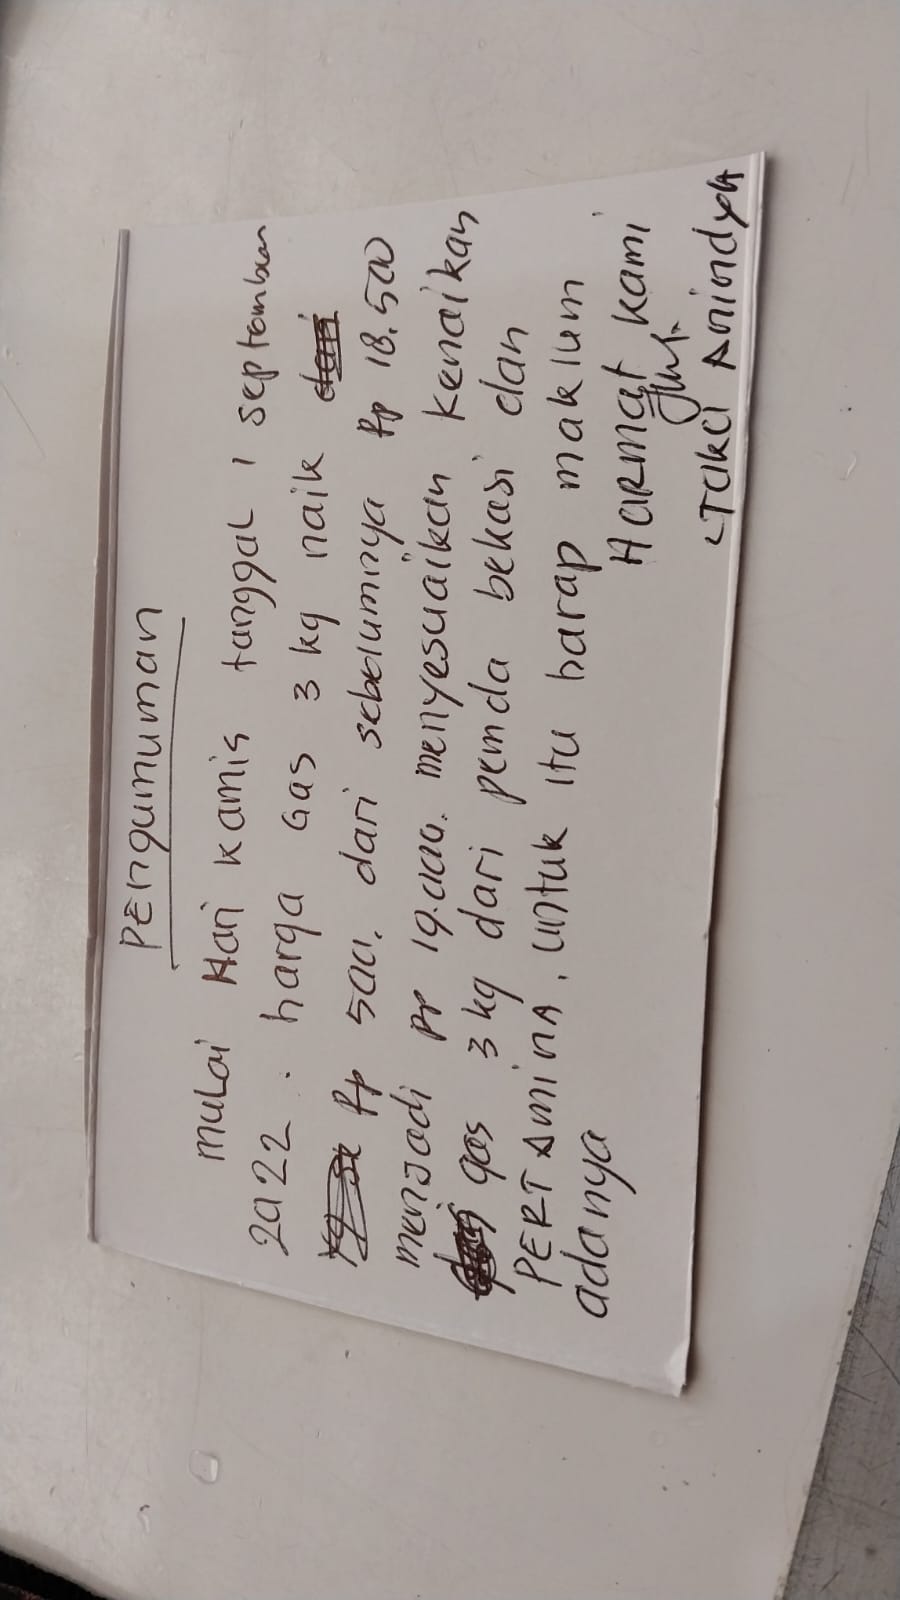 PENgumuman
muLai Hari kamis tanggaL 1 september
2022. harga Gas 3 kg naik dari
Rp 500, dari sebelumnya Rp 18.500
menjadi Rp 19.000. menyesuaikan kenaikan
gas 3 kg dari pemda bekasi dan
PERTAminA. untuk itu harap maklum
adanya
HaRmat kami
<Toko Anindya